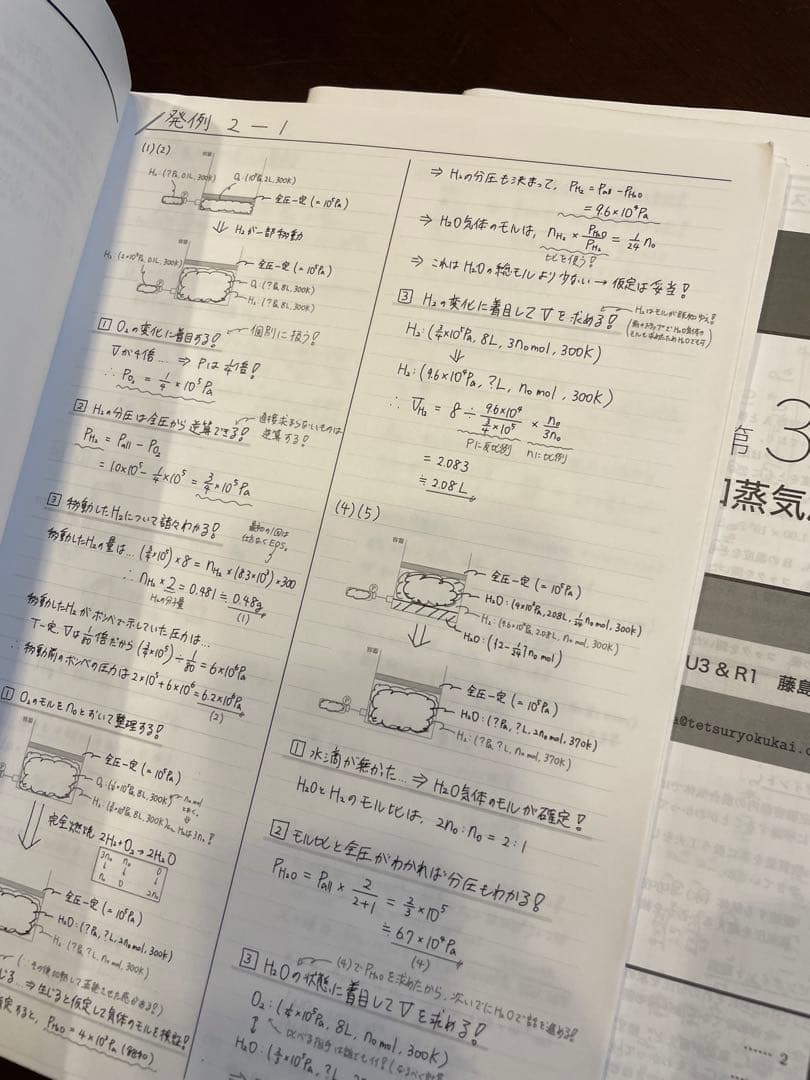 発例 2-1
(1)(2)
容器
H₂:(?Pa, 0.1L, 300K)
O₂(10⁵Pa, 2L, 300K)
全圧一定(=10⁵Pa)
⇓ H₂が一部移動
容器
H₂:(2×10⁵Pa, 0.1L, 300K)
全圧一定(=10⁵Pa)
O₂:(?Pa, 8L, 300K)
H₂:(?Pa, 8L, 300K)
1 O₂の変化に着目する! 個別に扱う!
Vが4倍…⇒Pは1/4倍!
∴ P_O₂ = 1/4×10⁵Pa
2 H₂の分圧は全圧から逆算できる! 直接求まらないものは逆算する!
P_H₂ = P_all − P_O₂
= 1.0×10⁵ − 1/4×10⁵ = 3/4×10⁵Pa
3 移動したH₂について諸々わかる!
移動したH₂の量は…(3/4×10⁵)×8 = n_H₂×(8.3×10³)×300
∴ n_H₂×2 = 0.481 ≒ 0.48g
H₂の分子量
(1)
移動したH₂がボンベで示していた圧力は…
T一定、Vは1/80倍だから(3/4×10⁵)÷1/80 = 6×10⁶Pa
∴ 移動前のボンベの圧力は 2×10⁵+6×10⁶ = 6.2×10⁶Pa
(2)
1 O₂のモルをn₀とおいて整理する!
容器
全圧一定(=10⁵Pa)
O₂:(1/4×10⁵Pa, 8L, 300K)
H₂:(3/4×10⁵Pa, 8L, 300K)
完全燃焼 2H₂+O₂→2H₂O
3n₀ n₀ 0
↓ ↓ ↓
n₀ 0 2n₀
全圧一定(=10⁵Pa)
H₂O:(?Pa, ?L, 2n₀mol, 300K)
H₂:(?Pa, ?L, n₀mol, 300K)
生じると仮定して気体のモルを検証!
P_H₂O = 4×10³Pa(飽和)
⇒ H₂の分圧も決まって、P_H₂ = P_all − P_H₂O
= 9.6×10⁴Pa
⇒ H₂O気体のモルは、n_H₂ × P_H₂O/P_H₂ = 1/24 n₀
比を使う!
⇒ これはH₂Oの総モルより少ない → 仮定は妥当!
3 H₂の変化に着目してVを求める!
H₂:(3/4×10⁵Pa, 8L, 3n₀mol, 300K)
↓
H₂:(9.6×10⁴Pa, ?L, n₀mol, 300K)
∴ V_H₂ = 8 ÷ 9.6×10⁴/(3/4×10⁵) × n₀/3n₀
Pに反比例 nに比例
= 2.083
≒ 2.08L
(4)(5)
容器
全圧一定(=10⁵Pa)
H₂O:(4×10³Pa, 2.08L, 1/24 n₀mol, 300K)
H₂:(9.6×10⁴Pa, 2.08L, n₀mol, 300K)
H₂O:((2−1/24)n₀mol)
⇓
容器
全圧一定(=10⁵Pa)
H₂O:(?Pa, ?L, 2n₀mol, 370K)
H₂:(?Pa, ?L, n₀mol, 370K)
1 水滴が無かった…⇒ H₂O気体のモルが確定!
H₂OとH₂のモル比は、2n₀:n₀ = 2:1
2 モル比と全圧がわかれば分圧もわかる!
P_H₂O = P_all × 2/(2+1) = 2/3×10⁵
≒ 6.7×10⁴Pa
(4)
(4)でP_H₂Oを求めたから、次いでにH₂Oで話を進める!
3 H₂Oの状態に着目してVを求める!
O₂:(1/4×10⁵Pa, 8L, n₀mol, 300K)
↕
H₂O:(2/3×10⁵Pa, ?L
第3
和蒸気
U3 & R1 藤島
@tetsuryokukai.c
…… 2